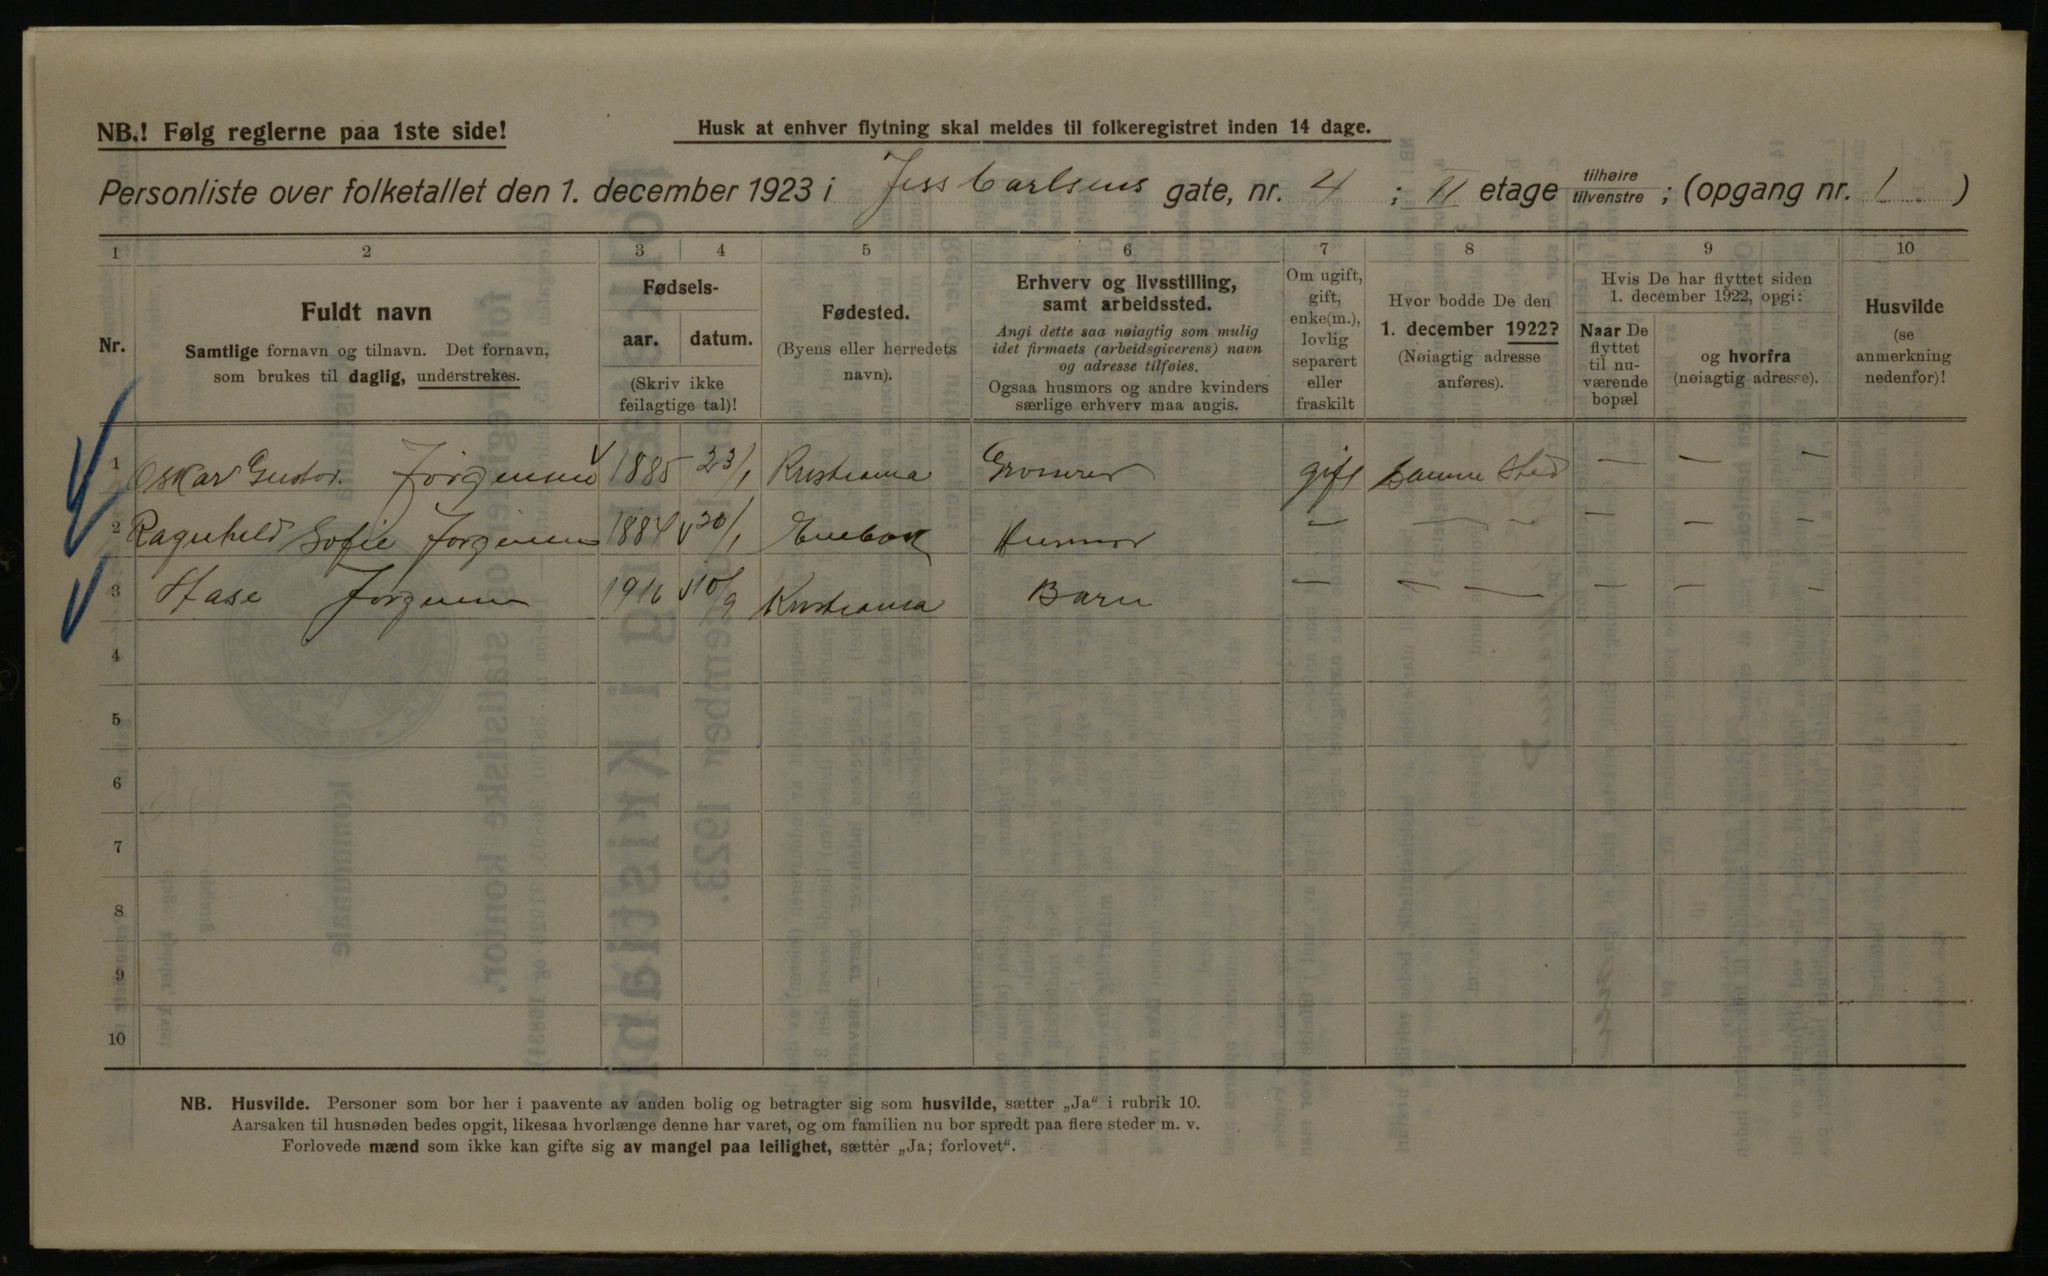 NB.! Følg reglerne paa 1ste side!
Husk at enhver flytning skal meldes til folkeregistret inden 14 dage.
Personliste over folketallet den 1. december 1923 i Jess Carlsens gate, nr. 4 ; II etage tilhøire tilvenstre ; (opgang nr. 1 )
1 2 3 4 5 6 7 8 9 10
Nr.
Fuldt navn
Samtlige fornavn og tilnavn. Det fornavn,
som brukes til daglig, understrekes.
Fødsels-
aar. datum.
(Skriv ikke
feilagtige tal)!
Fødested.
(Byens eller herredets
navn).
Erhverv og livsstilling,
samt arbeidssted.
Angi dette saa nøiagtig som mulig
idet firmaets (arbeidsgiverens) navn
og adresse tilføies.
Ogsaa husmors og andre kvinders
særlige erhverv maa angis.
Om ugift,
gift,
enke(m.),
lovlig
separert
eller
fraskilt
Hvor bodde De den
1. december 1922?
(Nøiagtig adresse
anføres).
Hvis De har flyttet siden
1. december 1922, opgi:
Naar De
flyttet
til nu-
værende
bopæl
og hvorfra
(nøiagtig adresse).
Husvilde
(se
anmerkning
nedenfor)!
1 Oskar Gustav Jørgensen 1885 23/1 Kristiania gift Samme Sted — — —
2 Ragnhild Sofie Jørgensen 1884 20/1 Enebak Husmor — — — — — —
3 Aase Jørgensen 1916 10/9 Kristiania Barn — — — — — —
4
5
6
7
8
9
10
NB. Husvilde. Personer som bor her i paavente av anden bolig og betragter sig som husvilde, sætter „Ja“ i rubrik 10.
Aarsaken til husnøden bedes opgit, likesaa hvorlænge denne har varet, og om familien nu bor spredt paa flere steder m. v.
Forlovede mænd som ikke kan gifte sig av mangel paa leilighet, sætter „Ja; forlovet“.